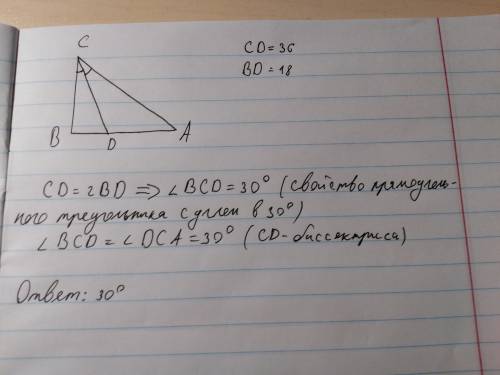 C
CD = 36
BD = 18
B
D
A
CD = 2BD ⇒ ∠BCD = 30° (свойство прямоуголь-
ного треугольника с углом в 30°)
∠BCD = ∠DCA = 30° (CD - биссектриса)
Ответ: 30°